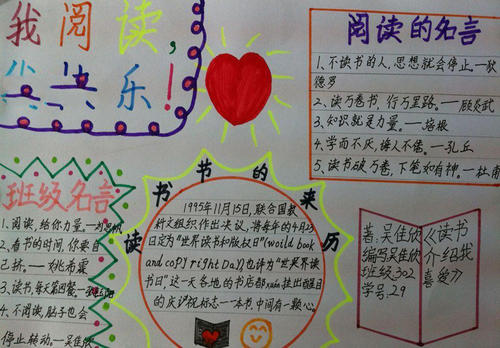 我阅读,
我快乐!
阅读的名言
1、不读书的人,思想就会停止。—狄
德罗
2、读万卷书,行万里路。——顾炎武
3、知识就是力量。——培根
4、学而不厌,诲人不倦。—孔丘
5、读书破万卷,下笔如有神。—杜甫
班级名言
1、阅读,给你力量。
2、看书的时间,你要自
己挤。——姚希霖
3、读书,每天第四餐。
4、不阅读,肚子也会
停止转动。—吴佳欣
读书节的来历
1995年11月15日,联合国教
科文组织作出决议,将每年的4月23
日定为"世界读书和版权日"(world book
and copyright Day),也译为"世界读
书日"。这一天各地的书店都xuán挂出醒目
的庆祝标志一本书,中间有一颗心。
著:吴佳欣
编写:吴佳欣
班级:302
学号:29
《读书
介绍我
喜爱》